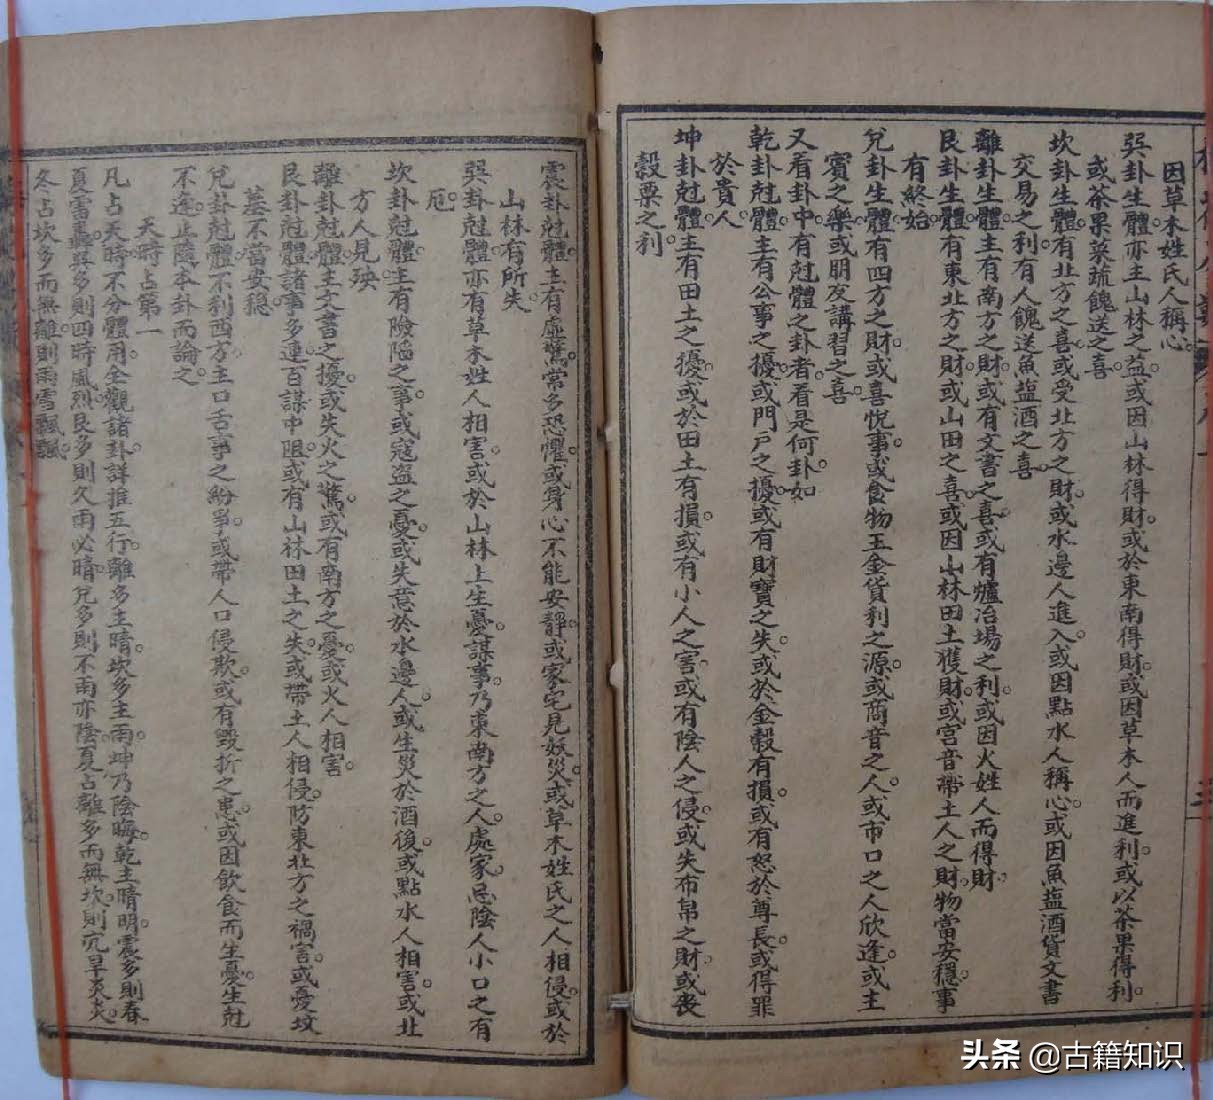 因草木姓氏人稱心。
巽卦生體。亦主山林之益。或因山林得財。或於東南得財。或因草木人而進利。或以茶果得利。
或茶果菜蔬餽送之喜。
坎卦生體。有北方之喜。或受北方之財。或水邊人進入。或因點水人稱心。或因魚鹽酒貨文書
交易之利。有人餽送魚鹽酒之喜。
離卦生體。主有南方之財。或有文書之喜。或有爐冶場之利。或因火姓人而得財。
艮卦生體。有東北方之財。或山田之喜。或因山林田土獲財。或宮音帶土人之財。物當安穩。事
有終始。
兌卦生體。有四方之財。或喜悅事。或食物玉金貨利之源。或商音之人。或市口之人欣逢。或主
賓之樂。或朋友講習之喜。
又看卦中有尅體之卦者。看是何卦。如
乾卦尅體。主有公事之擾。或門戶之擾。或有財寶之失。或於金穀有損。或有怒於尊長。或得罪
於貴人。
坤卦尅體。主有田土之擾。或於田土有損。或有小人之害。或有陰人之侵。或失布帛之財。或喪
穀粟之利。
震卦尅體。主有虛驚。常多恐懼。或身心不能安靜。或家宅見妖災。或草木姓氏之人相侵。或於
山林有所失。
巽卦尅體。亦有草木姓人相害。或於山林上生憂。謀事。乃東南方之人。處家。忌陰人小口之有
厄。
坎卦尅體。主有險陷之事。或寇盜之憂。或失意於水邊人。或生災於酒後。或點水人相害。或北
方人見殃。
離卦尅體。主文書之擾。或失火之驚。或有南方之憂。或火人相害。
艮卦尅體。諸事多違。百謀中阻。或有山林田土之失。或帶土人相侵。防東北方之禍害。或憂坟
墓不當安穩。
兌卦尅體。不利西方。主口舌事之紛爭。或帶人口侵欺。或有毀折之患。或因飲食而生憂。生尅
不逢。止隨本卦而論之。
天時占第一
凡占天時。不分體用。全觀諸卦。詳推五行。離多主晴。坎多主雨。坤乃陰晦。乾主晴明。震多則春
夏雷轟。巽多則四時風烈。艮多則久雨必晴。兌多則不雨亦陰。夏占離多而無坎。則亢旱炎炎。
冬占坎多而無離。則雨雪飄飄。
头条 @古籍知识